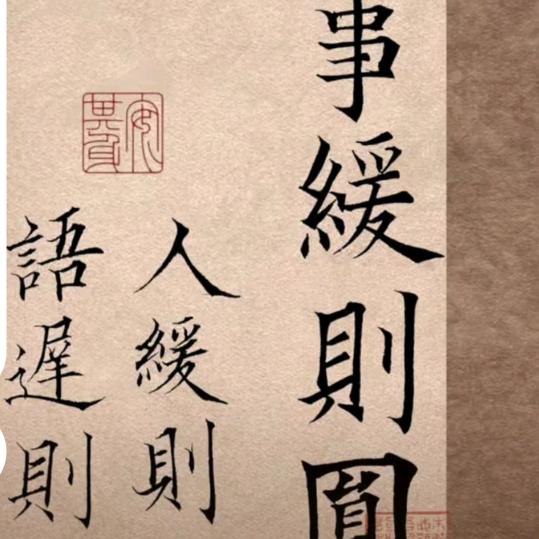 事緩則圓
人緩則
語遲則